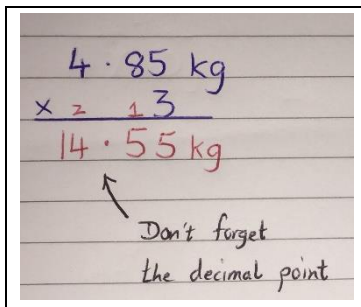 4 · 85 kg
× 2 1 3
14 · 55 kg
Don't forget
the decimal point